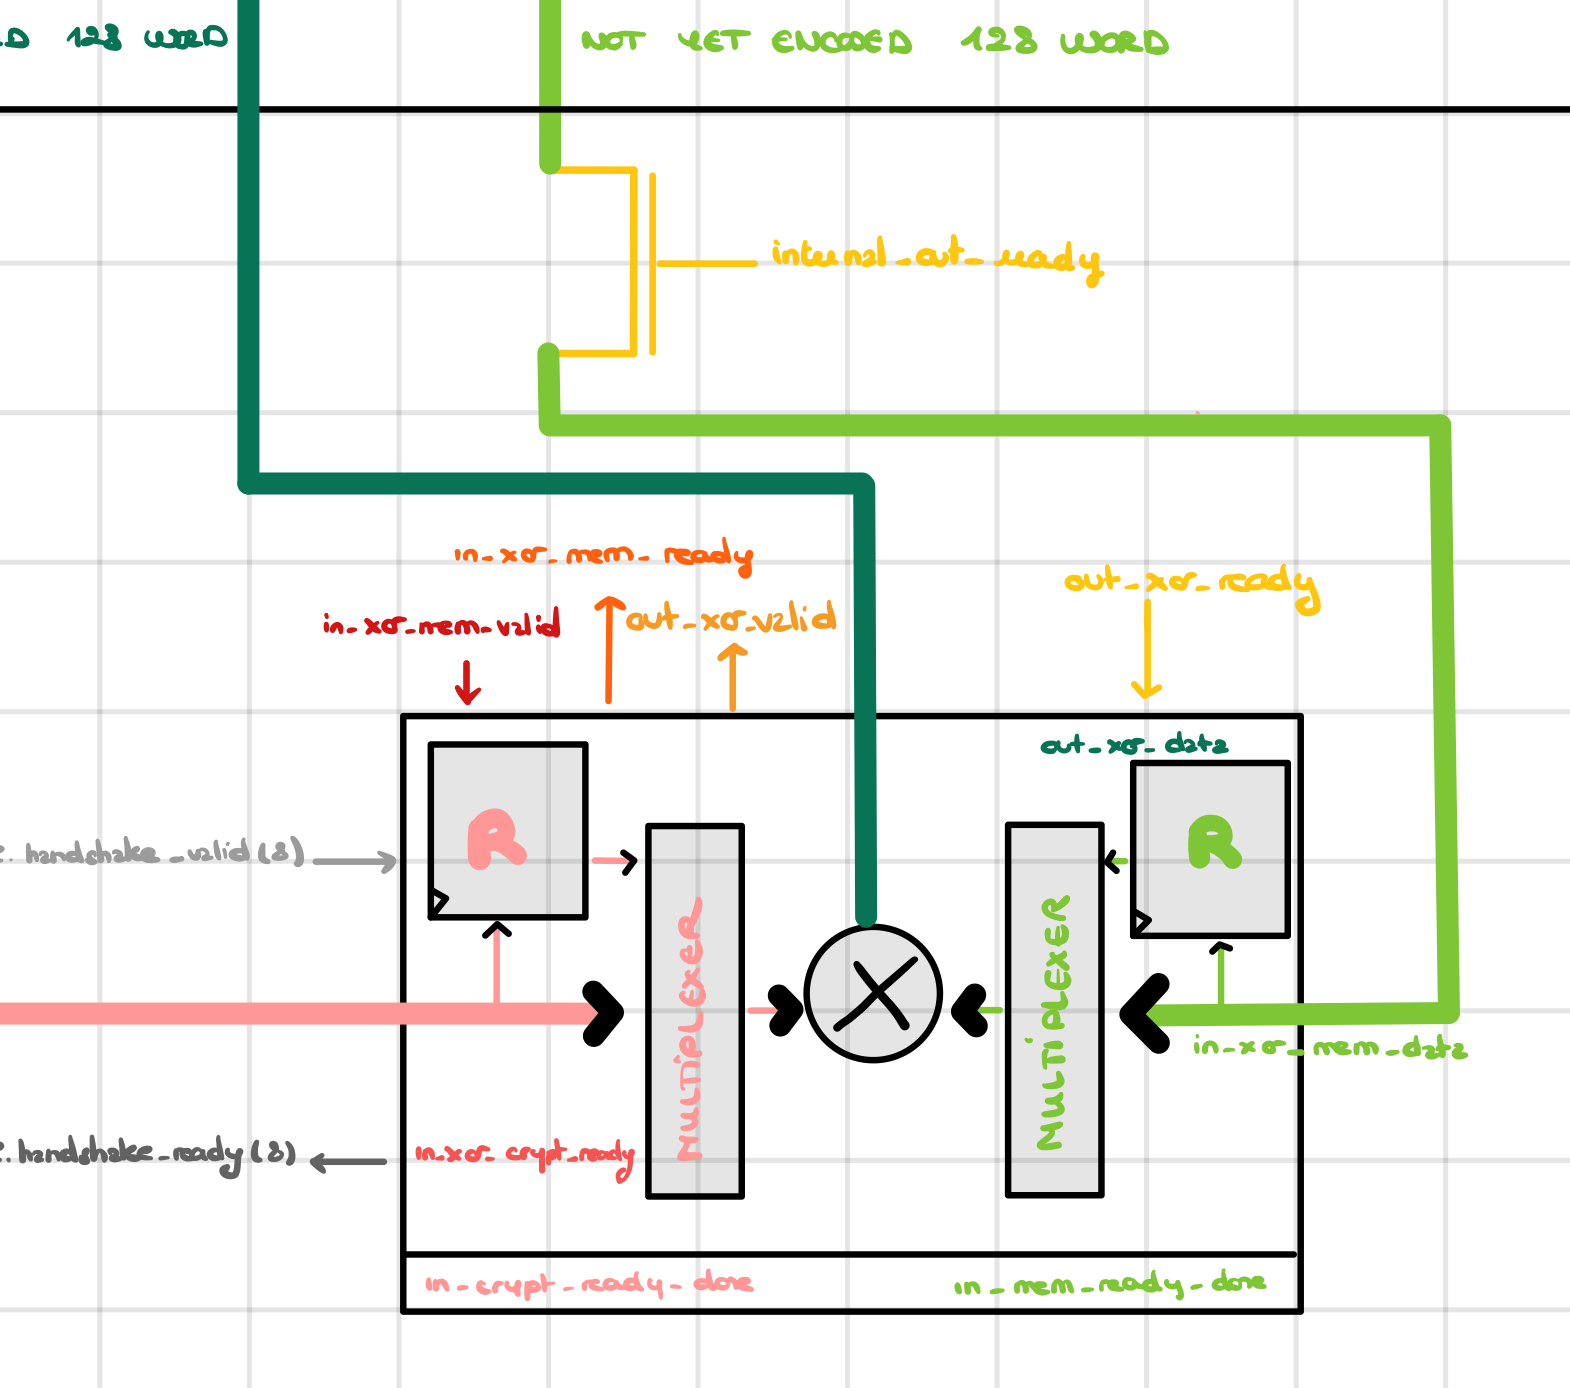 D 128 WORD
NOT YET ENCODED 128 WORD
internal_out_ready
in_xor_mem_ready
out_xor_ready
in_xor_mem_valid
out_xor_valid
out_xor_data
R
R
handshake_valid(8)
MULTIPLEXER
MULTIPLEXER
in_xor_mem_data
handshake_ready(8)
in_xor_crypt_ready
in_crypt_ready_done
in_mem_ready_done